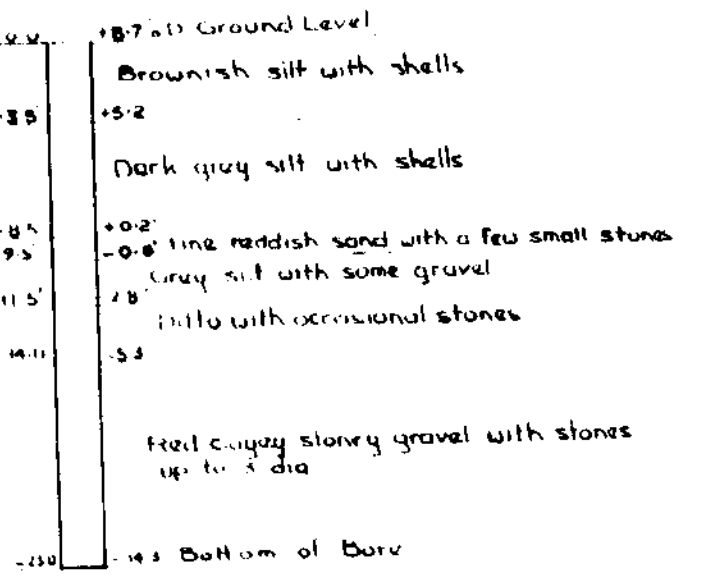 0.0 +8.7 O.D Ground Level
Brownish silt with shells
3.5' +5.2
Dark grey silt with shells
8.5 +0.2'
9.5' -0.8' Fine reddish sand with a few small stones
Grey silt with some gravel
11.5' 2.8'
Ditto with occasional stones
14.11 -5.3
Red clayey stoney gravel with stones
up to dia
-23.0 -14.3 Bottom of Bore